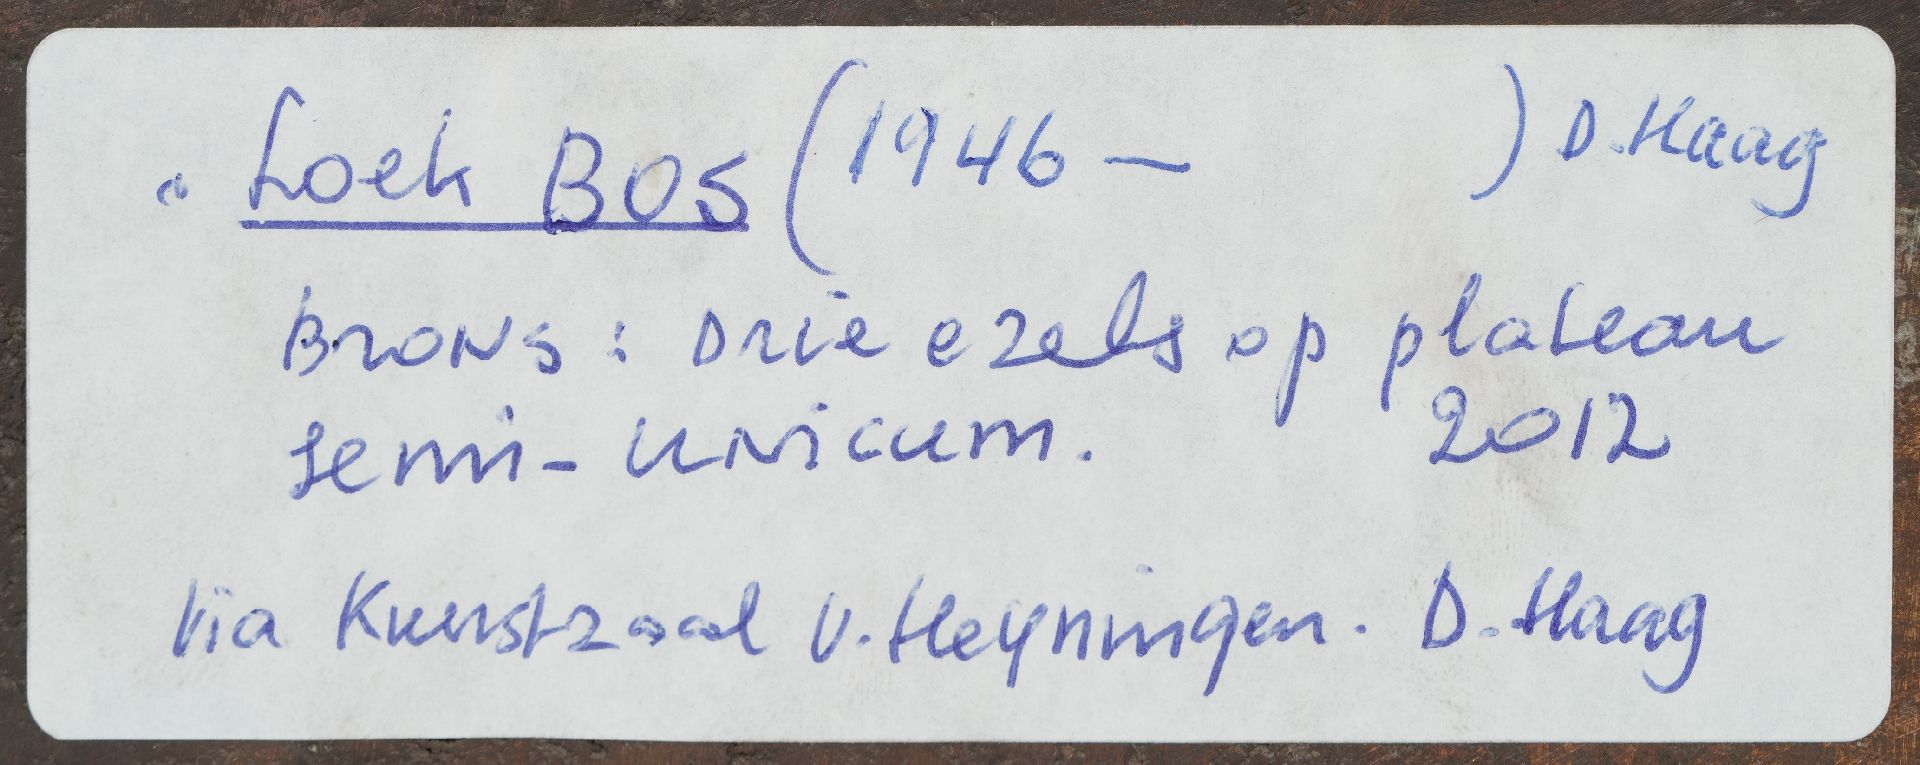 Loek Bos (1946 – ) D. Haag
Brons: Drie ezels op plateau
semi-unicum. 2012
Via Kunstzaal v. Heyningen. D. Haag